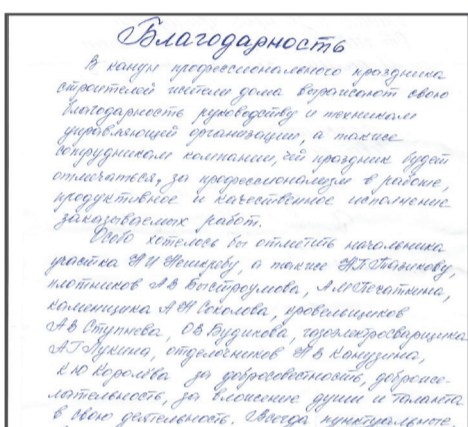 Благодарность
В канун профессионального праздника
строителей жители дома выражают свою
благодарность руководству и техникам
управляющей организации, а также
сотрудникам компании, чей праздник будет
отмечаться, за профессионализм в работе,
продуктивное и качественное исполнение
заказываемых работ.
Особо хотелось бы отметить начальника
участка а также
плотников АВ Быстроумова, АМ Печаткина,
каменщика АН Соколова, кровельщиков
АВ Ступнева, ОВ Будикова, газоэлектросварщика
АГ Лукина, отделочников НВ Канузина,
КЮ Королёва за добросовестность, доброже-
лательность, за вложение души и таланта
в свою деятельность. Всегда пунктуальные,